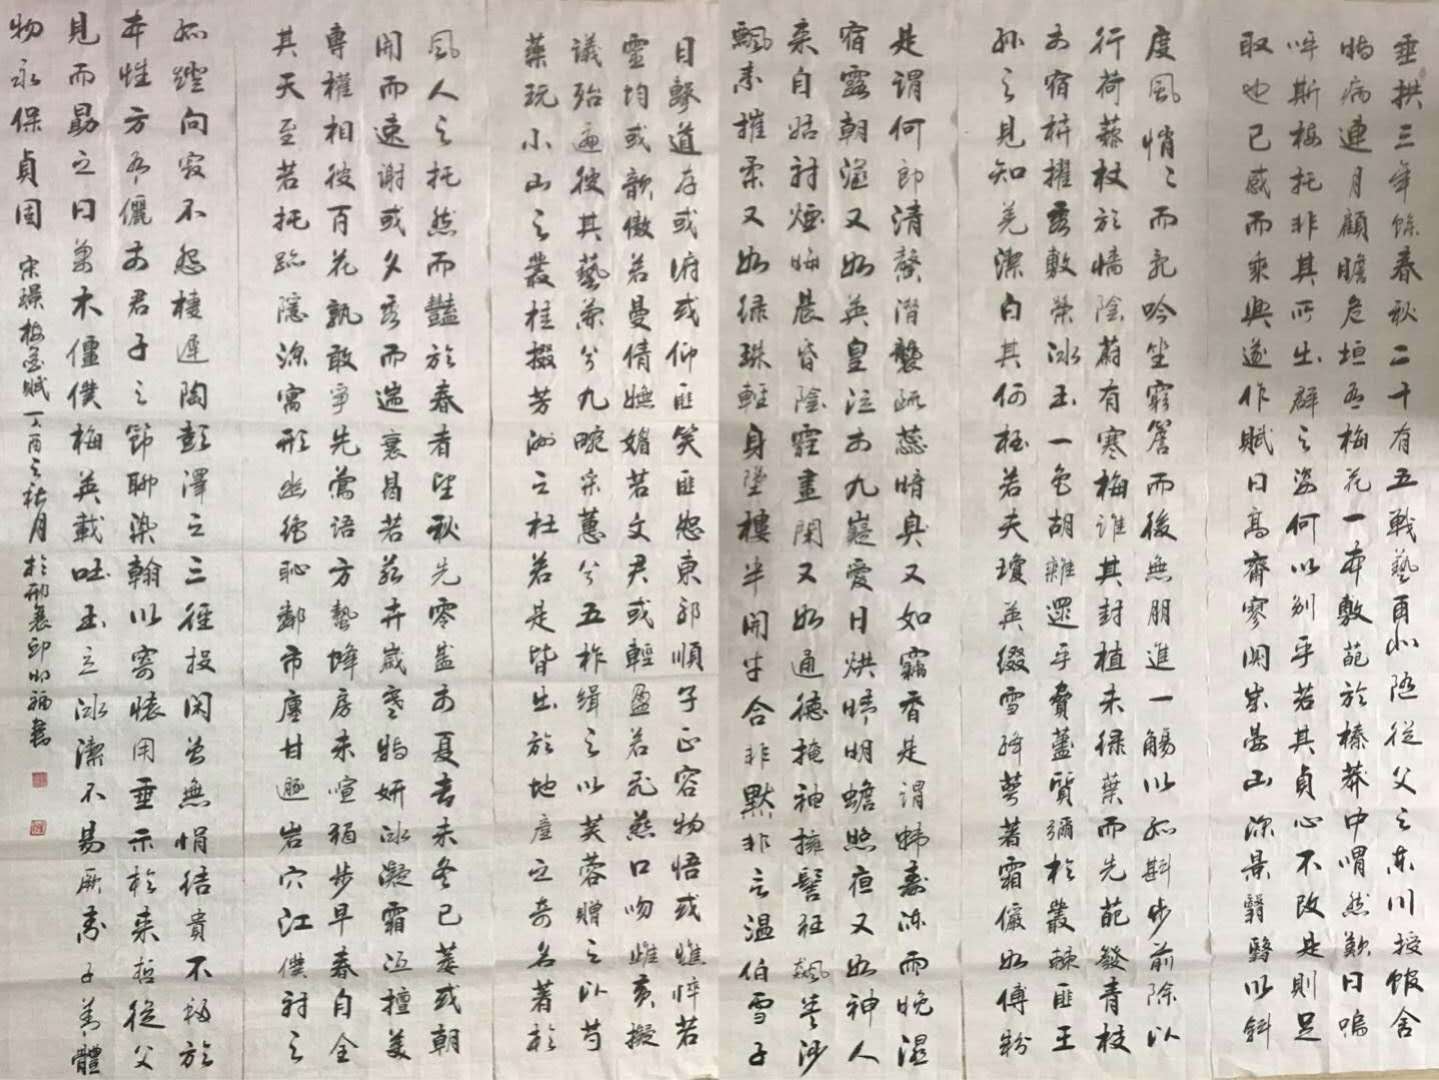 垂拱三年餘春秋二十有五戰藝再北隨從父之東川授館舍
時病連月顧瞻危垣有梅花一本敷葩於榛莽中喟然歎曰嗚
呼斯梅托非其所出群之姿何以别乎若其貞心不改是則足
取也已感而乘興遂作賦曰高齋寥闃岑崟山深景翳翳以斜
度風悄悄而亂吟坐窮簷而後無朋進一觴以孤斟步前除以
行荷藜杖於墻陰蔚有寒梅誰其封植未绿葉而先葩發青枝
於宿枿擢秀敷榮冰玉一色胡雜遝乎費藎質彌於叢棘匪王
孫之見知羌潔白其何極若夫瓊英綴雪絳萼著霜儼如傅粉
是謂何郎清馨潛襲疏蕊暗臭又如竊香是謂韓壽凍雨晚濕
宿露朝滋又如英皇泣於九嶷愛日烘晴明蟾照夜又如神人
來自姑射煙晦晨昏陰霾晝閑又如通德掩袖擁髻狂飆卷沙
飄素摧柔又如绿珠輕身墜樓半開半合非默非言温伯雪子
目擊道存或俯或仰匪笑匪怒東郭順子正容物悟或憔悴若
靈均或歆傲若曼倩嫵媚若文君或輕盈若飛燕口吻雌黄擬
議殆遍彼其藝蘭兮九畹采蕙兮五柞緝之以芙蓉贈之以芍
藥玩小山之叢桂掇芳洲之杜若是皆出於地產之奇名著於
風人之托然而豔於春者望秋先零盛於夏者未冬已萎或朝
開而速謝或夕秀而遄衰曷若兹卉歲寒特妍冰凝霜沍擅美
專權相彼百花孰敢爭先鶯語方蟄蜂房未喧獨步早春自全
其天至若托跡隱深寓形幽絶恥鄰市廛甘遯岩穴江僕射之
孤燈向寂不怨棲遲陶彭澤之三徑投閑曾無悁结貴不移於
本性方有儷於君子之節聊染翰以寄懷用垂示於來哲從父
見而勗之曰萬木僵僕梅英載吐玉立冰潔不易厥素子善體
物永保貞固 宋璟梅花賦丁酉之秋月於邢襄